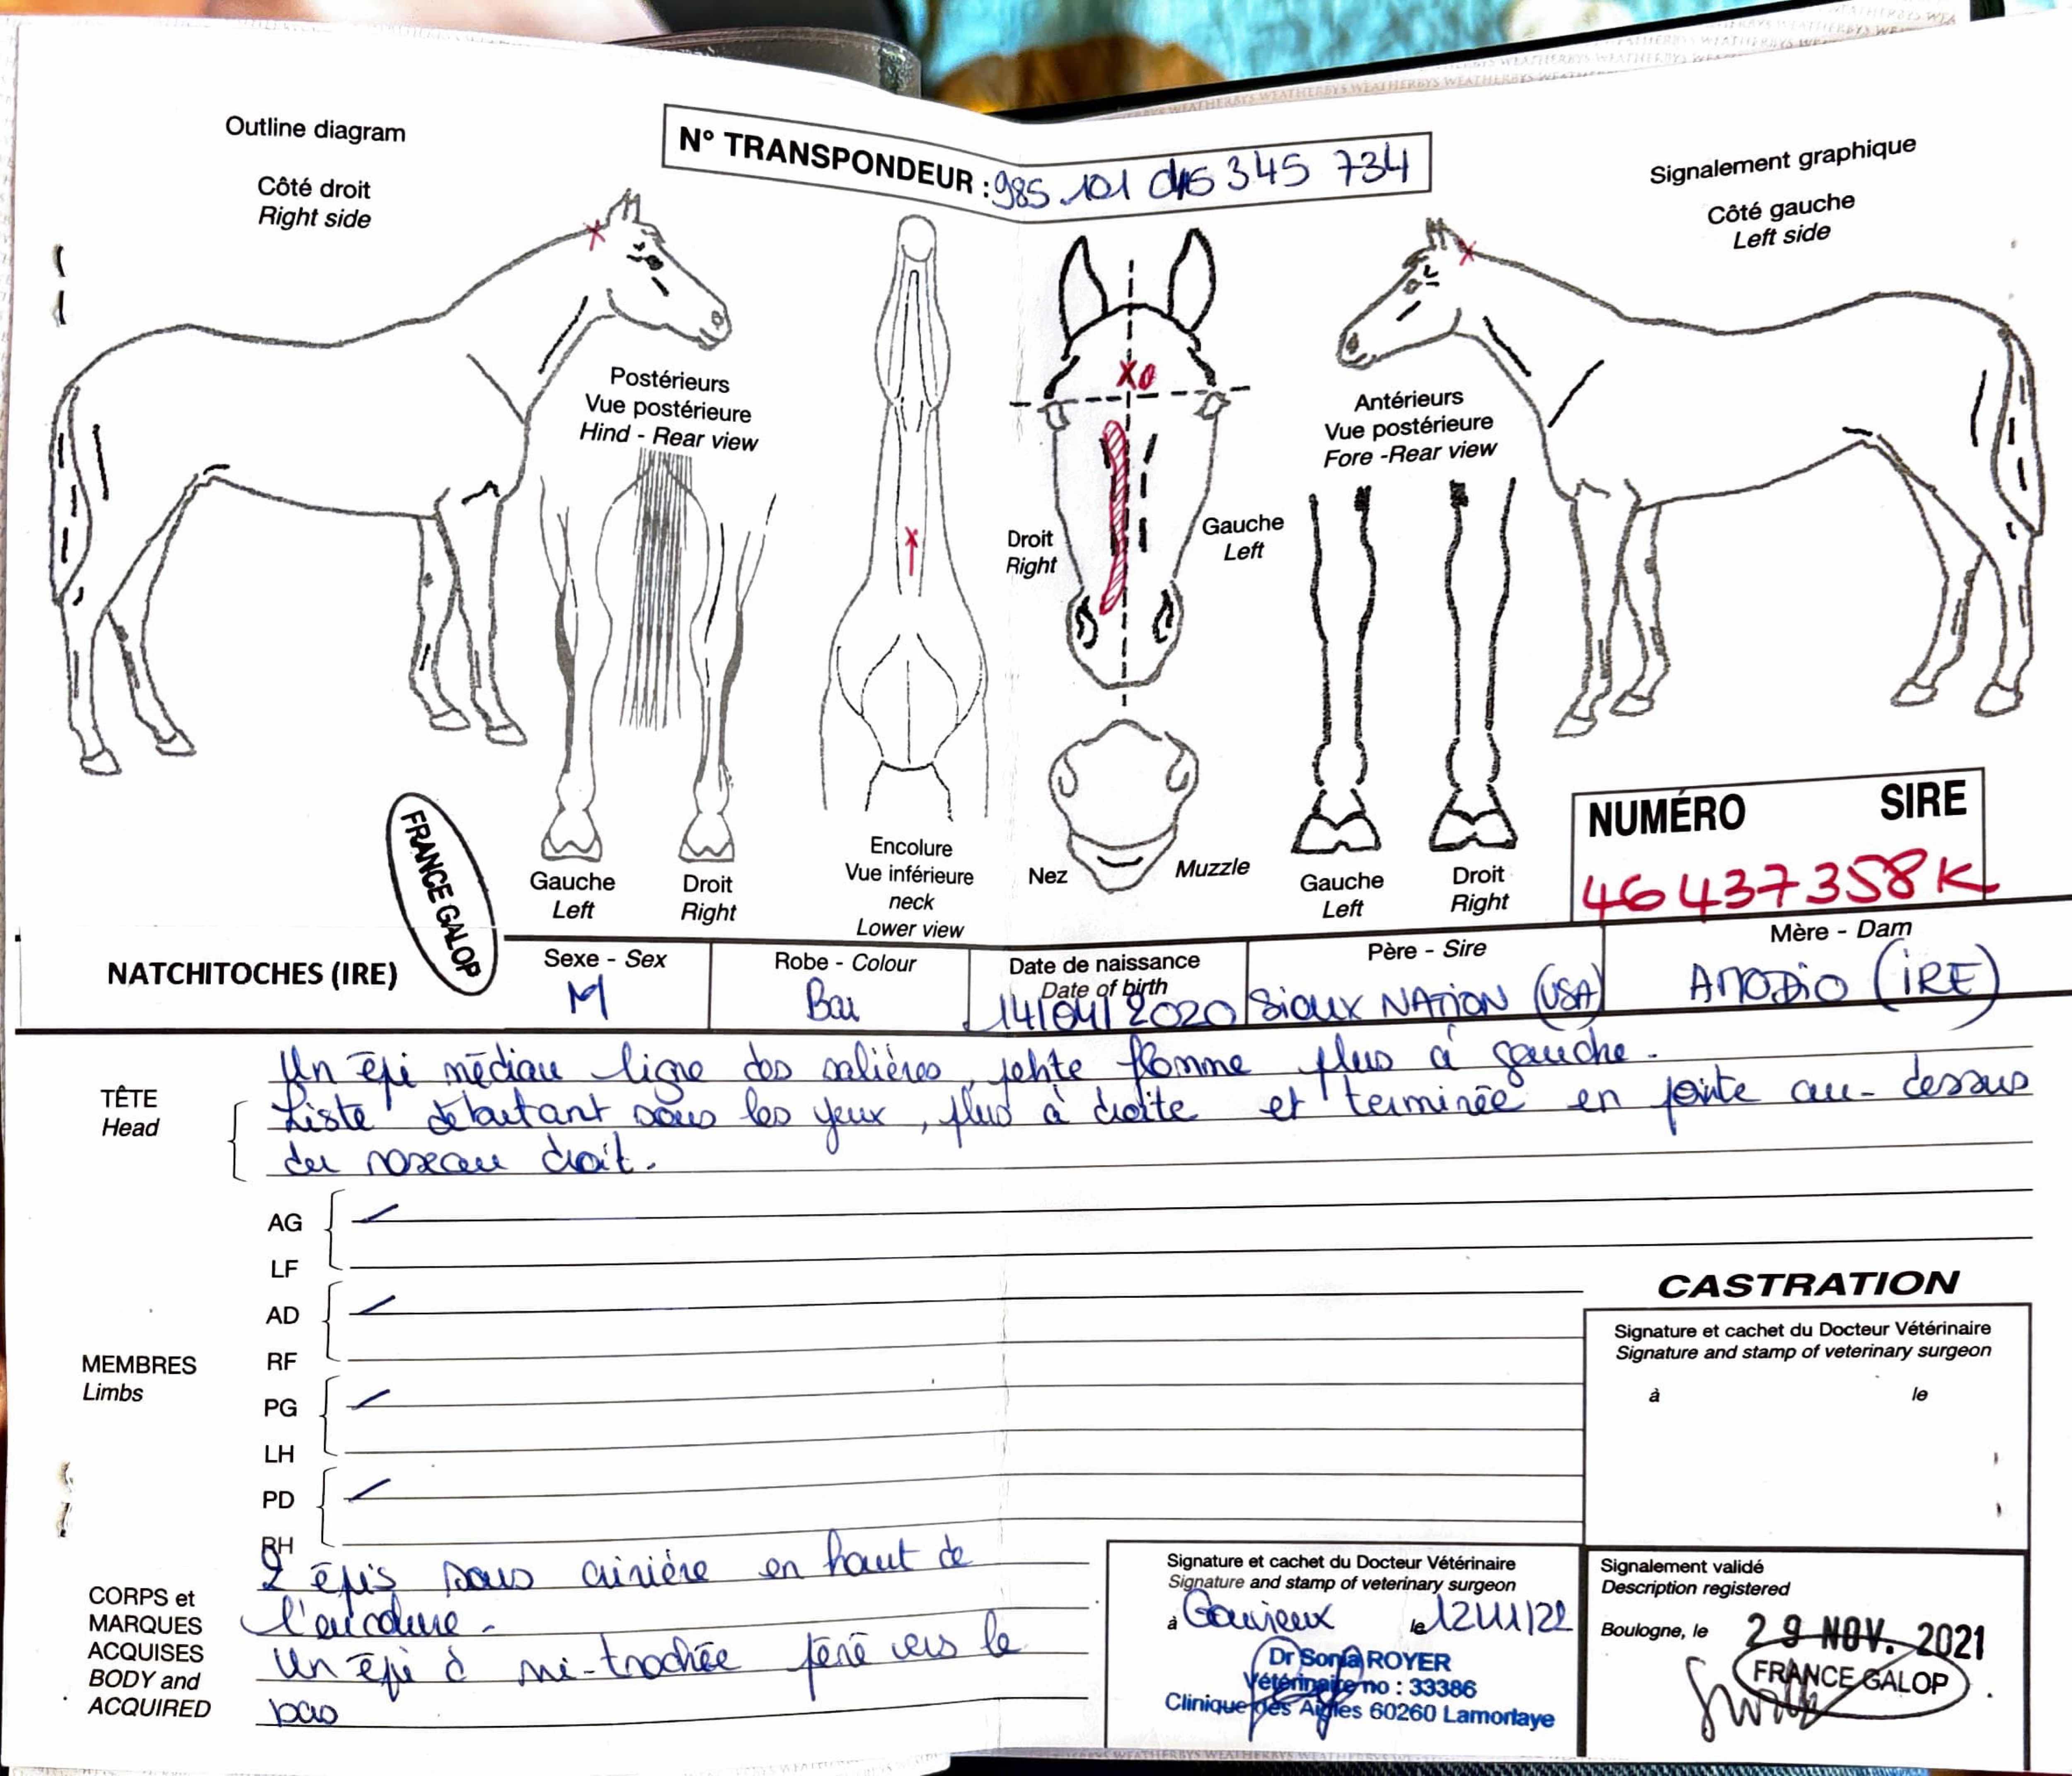 Outline diagram
Côté droit
Right side
N° TRANSPONDEUR : 985 101 045 345 734
Signalement graphique
Côté gauche
Left side
Postérieurs
Vue postérieure
Hind - Rear view
Antérieurs
Vue postérieure
Fore -Rear view
Droit
Right
Gauche
Left
Gauche
Left
Droit
Right
Encolure
Vue inférieure
neck
Lower view
Nez
Muzzle
Gauche
Left
Droit
Right
NUMÉRO SIRE
46 437 358 K
FRANCE GALOP
NATCHITOCHES (IRE)
Sexe - Sex
M
Robe - Colour
Bai
Date de naissance
Date of birth
14/04/2020
Père - Sire
SIOUX NATION (USA)
Mère - Dam
AMODIO (IRE)
TÊTE
Head
Un épi médian ligne des salières, petite flamme plus à gauche.
Liste débutant sous les yeux, plus à droite et terminée en pointe au-dessus
du naseau droit.
MEMBRES
Limbs
AG
LF
AD
RF
PG
LH
PD
RH
CASTRATION
Signature et cachet du Docteur Vétérinaire
Signature and stamp of veterinary surgeon
à le
CORPS et
MARQUES
ACQUISES
BODY and
ACQUIRED
2 épis sous crinière en haut de
l'encolure.
Un épi à mi-trachée péné vers le
bas
Signature et cachet du Docteur Vétérinaire
Signature and stamp of veterinary surgeon
à Gouvieux le 12/11/22
Dr Sonia ROYER
Vétérinaire no : 33386
Clinique des Aigles 60260 Lamorlaye
Signalement validé
Description registered
Boulogne, le 29 NOV. 2021
FRANCE GALOP
WEATHERBYS WEATHERBYS WEATHERBYS